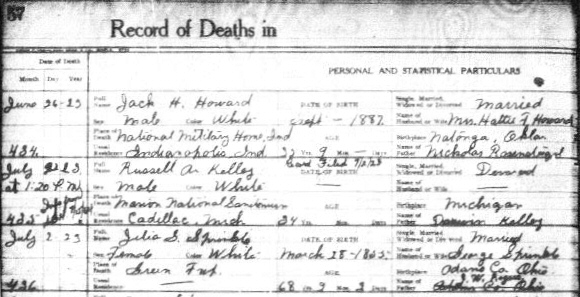 37
Record of Deaths in
Date of Death
Month Day Year
PERSONAL AND STATISTICAL PARTICULARS
June 26-23
Full Name Jack H. Howard
DATE OF BIRTH
Single, Married, Widowed or Divorced Married
Sex Male Color White
Sept - 1887
Name of Husband or Wife Mrs. Hattie F. Howard
Place of Death National Military Home, Ind
AGE
Birthplace Okla.
434.
Usual Residence Indianapolis, Ind
9 Mos Days
Name of Father Nicholas
July 23.
Full Name Russell A. Kelley
Card Filed
DATE OF BIRTH
Single, Married, Widowed or Divorced
at 1:20 P.M.
Sex Male Color White
Name of Husband or Wife
Place of Death Marion National Sanitarium
AGE
Birthplace Michigan
435
Usual Residence Cadillac, Mich
34 Yrs. Mos Days
Name of Father Kelley
July 2 23
Full Name Julia S. Sprinkle
DATE OF BIRTH
Single, Married, Widowed or Divorced Married
Sex Female Color White
March 28 - 1855
Name of Husband or Wife George Sprinkle
Place of Death Green Twp.
AGE
Birthplace Adams Co. Ohio
436
Usual Residence
68 Yrs. Mos 2 Days
Name of Father J. W.
Adams Co. Ohio